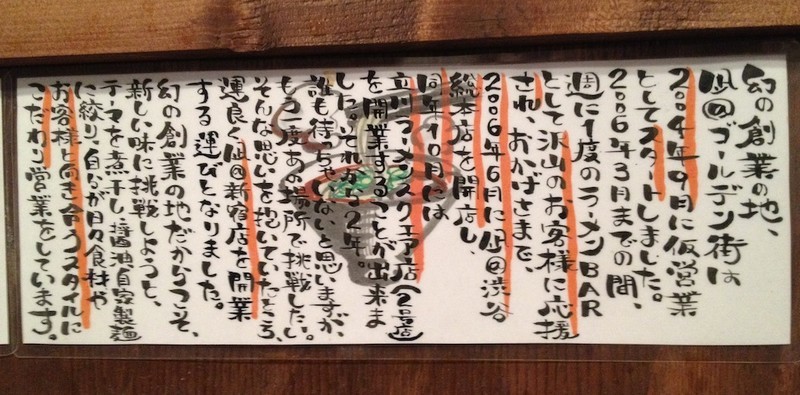 幻の創業の地、
凪@ゴールデン街は
2004年9月に仮営業
としてスタートしました。
2006年3月までの間、
週に1度のラーメンBAR
として沢山のお客様に応援
され、おかげさまで、
2006年6月に凪@渋谷
総本店を開店し、
同年10月には
立川ラーメンスクエア店(2号店)
を開業することが出来ま
した。それから2年。
誰も待っちゃいないと思いますが、
もう一度あの場所で挑戦したい。
そんな思いを抱いていたところ、
運良く凪@新宿店を開業
する運びとなりました。
幻の創業の地だからこそ、
新しい味に挑戦しようと、
テーマを煮干し、醤油、自家製麺
に絞り、自らが日々食材や
お客様と向き合うスタイルに
こだわり営業をしています。